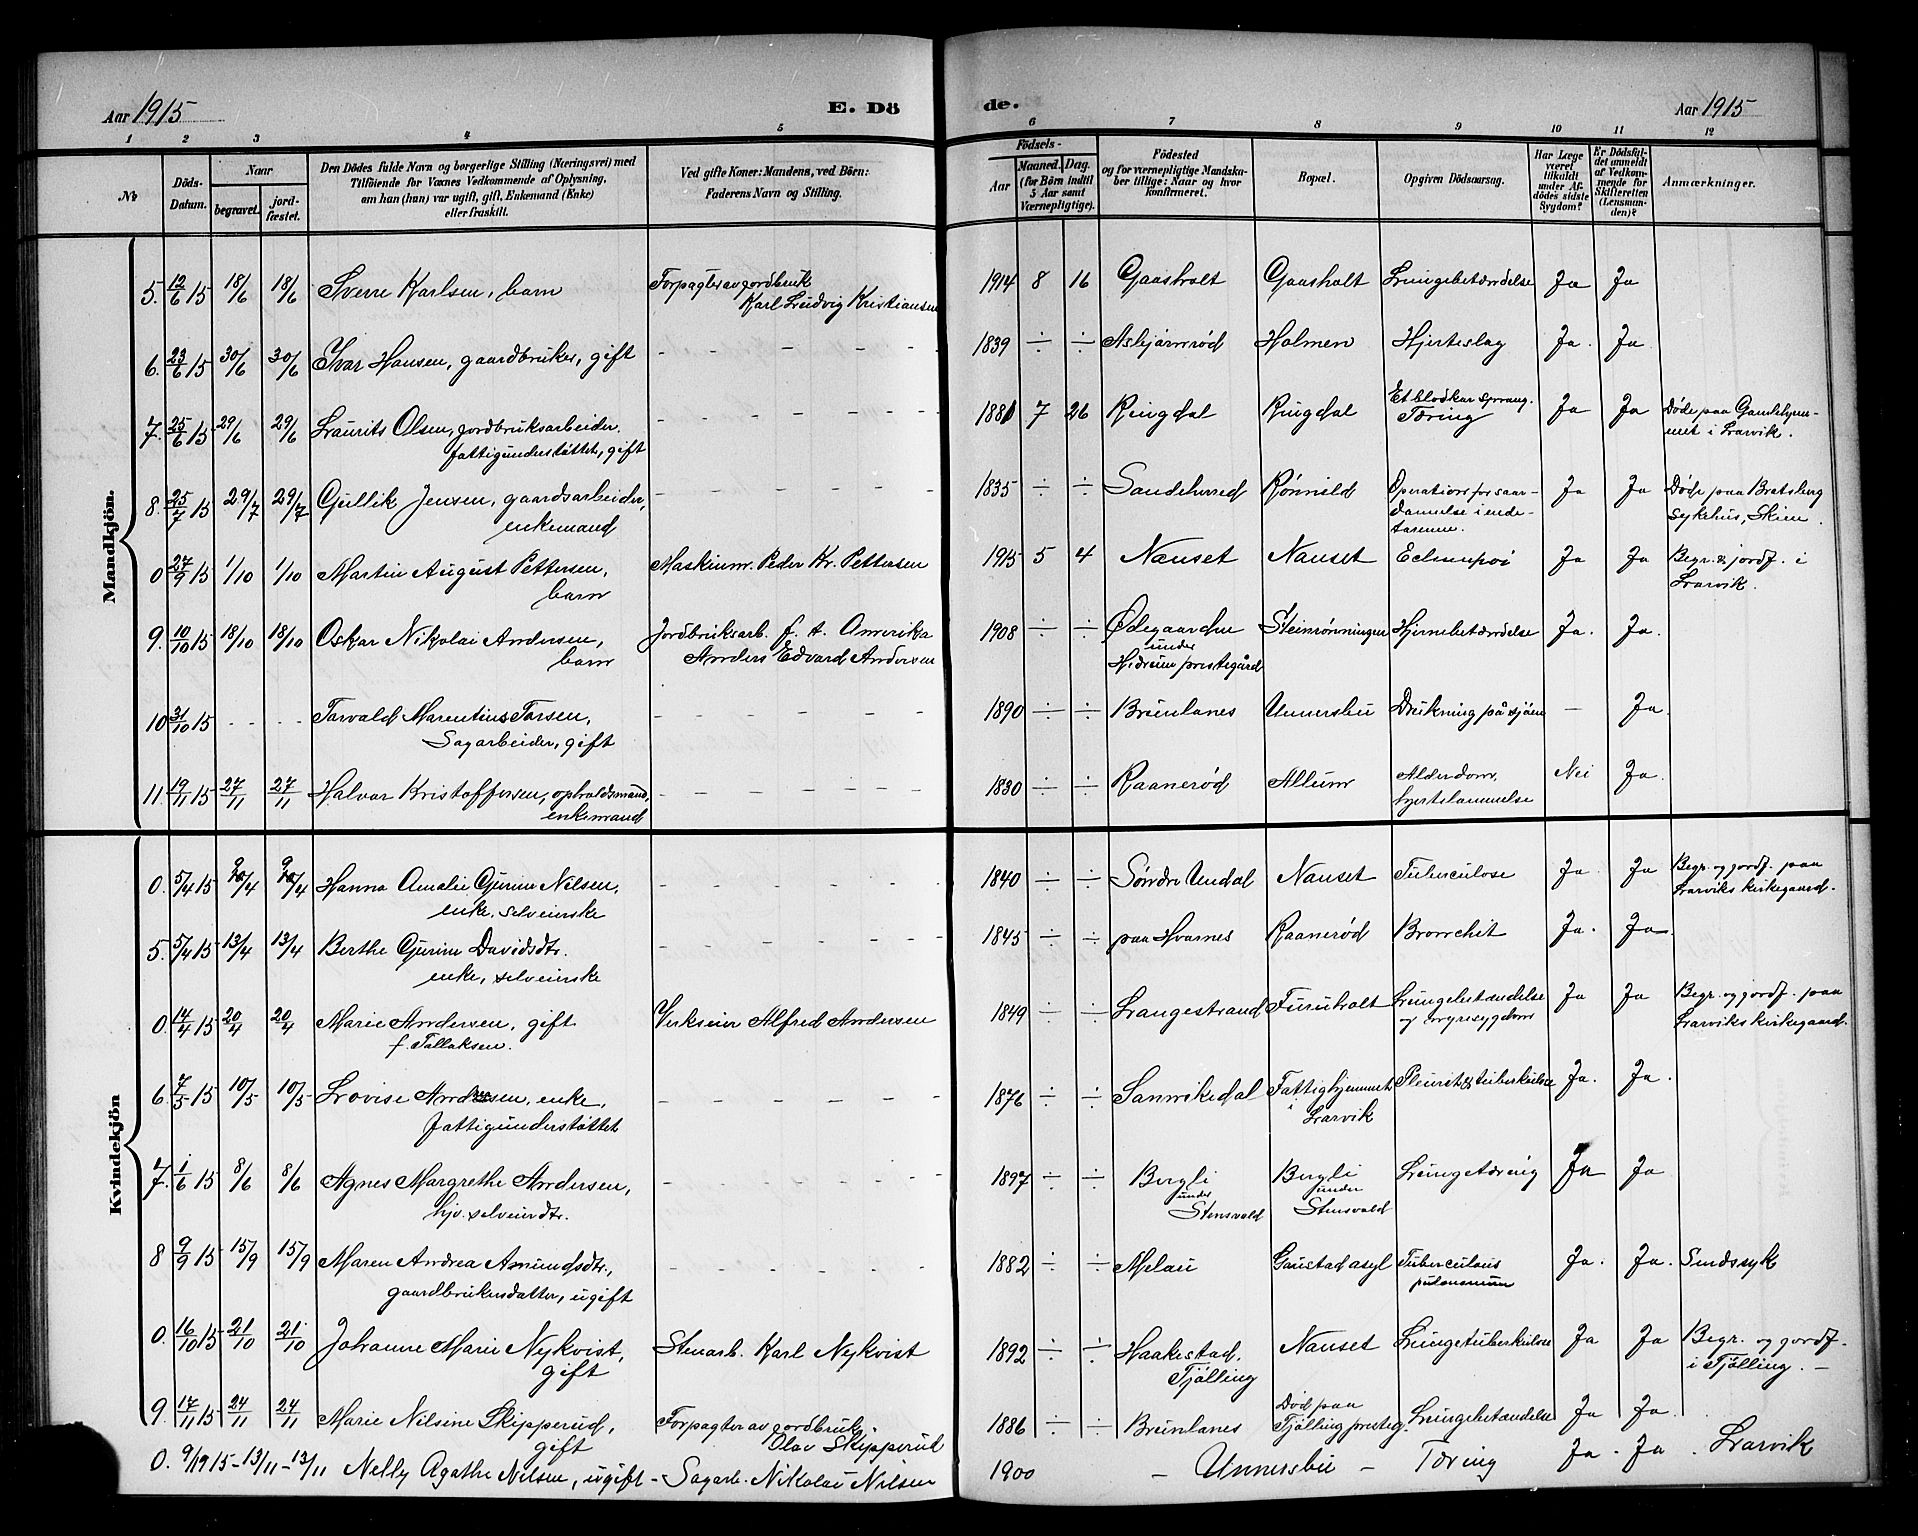 Aar 1915 E. Dö
1 2 3 4 5
№ Döds-Datum. Naar begravet. jord-fæstet. Den Dödes fulde Navn og borgerlige Stilling (Næringsvei) med Tilföiende for Voxnes Vedkommende af Oplysning, om han (hun) var ugift, gift, Enkemand (Enke) eller fraskilt. Ved gifte Koner: Mandens, ved Börn: Faderens Navn og Stilling.
Mandkjön.
5. 12/6 15 18/6 18/6 Sverre Karlsen, barn Forpagter av jordbruk
Karl Ludvig Kristiansen
6. 23/6 15 30/6 30/6 Ivar Hansen, gaardbruker, gift - - - - -
7. 25/6 15 29/6 29/6 Laurits Olsen, jordbruksarbeider.
fattigunderstøttet, gift
8. 25/7 15 29/7 29/7 Gullik Jensen, gaardsarbeider,
enkemand
0 27/9 15 1/10 1/10 Martin August Pettersen, Maskinm. Peder Kr. Pettersen
barn
9. 10/10 15 18/10 18/10 Oskar Nikolai Andersen, Jordbruksarb. f. t. Amerika
barn Anders Edvard Andersen
10 31/10 15 - - - - Torvald Marentius Torsen,
Sagarbeider, gift
11. 19/11 15 27/11 27/11 Halvor Kristoffersen, opholdsmand,
enkemand
Kvindekjön
0. 5/4 15 9/4 9/4 Hanna Amalie Gjurine Nilsen,
enke, selveierske
5. 5/4 15 13/4 13/4 Berthe Gjurine Davidsdtr.
enke, selveierske
0. 14/4 15 20/4 20/4 Marie Andersen, gift Verkseier Alfred Andersen
f. Tallaksen.
6. 7/5 15 10/5 10/5 Lovise Andersen, enke,
Fattigunderstøttet
7. 1/6 15 8/6 8/6 Agnes Margrethe Andersen,
hjv. selveierdtr.
8 9/9 15 15/9 15/9 Maren Andrea Amundsdtr.,
gaardbrukersdatter, ugift
0. 16/10 15 21/10 21/10 Johanne Marie Nykvist, Stenarb. Karl Nykvist
gift
9. 17/11 15 24/11 24/11 Marie Nilsine Skipperud, Forpagter av jordbruk
gift Olav Skipperud
0. 9/11 15 - 13/11 - 13/11 Nelly Agathe Nilsen, ugift - Sagarb. Nikolai Nilsen
de. Aar 1915
6 7 8 9 10 11 12
Födsels- Aar Maaned. Dag. (for Börn indtil 5 Aar samt Værnepligtige). Födested og for værnepligtige Mandskaber tillige: Naar og hvor konfirmeret. Bopæl. Opgiven Dödsaarsag. Har Læge været tilkaldt under Afdödes sidste Sygdom? Er Dödsfaldet anmeldt af Vedkommende for Skifteretten (Lensmanden)? Anmærkninger.
1914 8 16 Gaasholt Gaasholt Lungebetændelse Ja Ja
1839 ÷ ÷ Asbjørnrød Holmen Hjerteslag Ja. Ja.
1881 7 26 Ringdal Ringdal Et blodkar sprang. Tæring Ja Ja Døde paa Gamlehjemmet i Larvik.
1835 ÷ ÷ Sandeherred Rønnild Operation for saardannelse i endetarmen. Ja Ja Døde paa Bratsberg sykehus, Skien.
1915 5 4 Nanset Nanset Eclampsi Ja Ja Begr. & jordf. i Larvik.
1908 ÷ ÷ Ødegaarden under Hedrum prestegård Steinsrønningen Hjernebetændelse Ja. Ja.
1890 ÷ ÷ Brunlanes Unnersbu Drukning på sjøen — Ja.
1830 ÷ ÷ Raanerød Allum Alderdom, hjertelammelse Nei Ja.
1840 ÷ ÷ Søndre Undal Nanset Tuberculose Ja. Ja Begr. og jordf. paa Larviks kirkegaard.
1845 ÷ ÷ paa Hvarnes Raanerød Bronchit Ja. Ja
1849 ÷ ÷ Langestrand Furuholt Lungebetændelse og nyresygdom Ja Ja Begr. og jordf. paa Larviks kirkegaard.
1876 ÷ ÷ Sannikedal Fattighjemmet i Larvik Pleurit & tuberkulose Ja. Ja.
1897 ÷ ÷ Bergli under Stensvald Bergli under Stensvald Lungetæring Ja Ja
1882 ÷ ÷ Melau Gaustad asyl Tuberculous pulmonum Ja. Ja. Sindssyk
1892 ÷ ÷ Haakestad, Tjølling Nanset Lungetuberkulose Ja Ja Begr. og jordf. i Tjølling. —
1886 ÷ ÷ Brunlanes Død paa Tjølling presteg. Lungebetændelse Ja Ja.
1900 - Unnersbu - Tæring Ja. Ja. Larvik